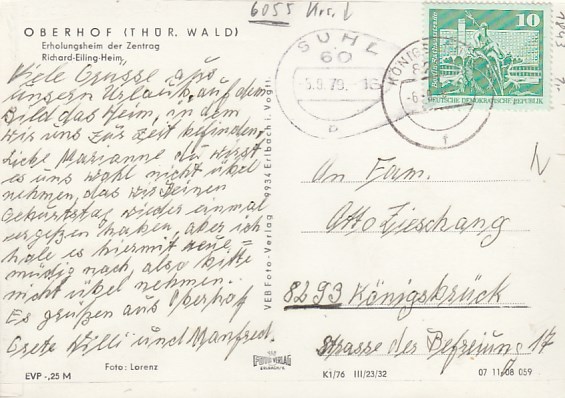 6055
OBERHOF (THÜR. WALD)
Erholungsheim der Zentrag
Richard-Eiling-Heim
Viele Grüsse aus
unsern Urlaub, auf dem
Bild das Heim, in dem
wir uns zur Zeit befinden.
Liebe Marianne du wirst
es uns wohl nicht übel
nehmen, das wir Deinen
Geburtstag wieder einmal
vergeßen haben, aber ich
hole es hiermit reue=
mütig nach also bitte
nicht übel nehmen.
Es grüßen aus Oberhof
Grete Willi und Manfred.
Foto: Lorenz
EVP -,25 M
VEB Foto-Verlag 9934 Erlbach i. Vogtl.
SUHL
60
-5.9.79.-16
b
10
DEUTSCHE DEMOKRATISCHE REPUBLIK
An Fam.
Otto Zieschang
8293 Königsbrück
Strasse der Befreiung 17
K1/76 III/23/32
07 11 08 059